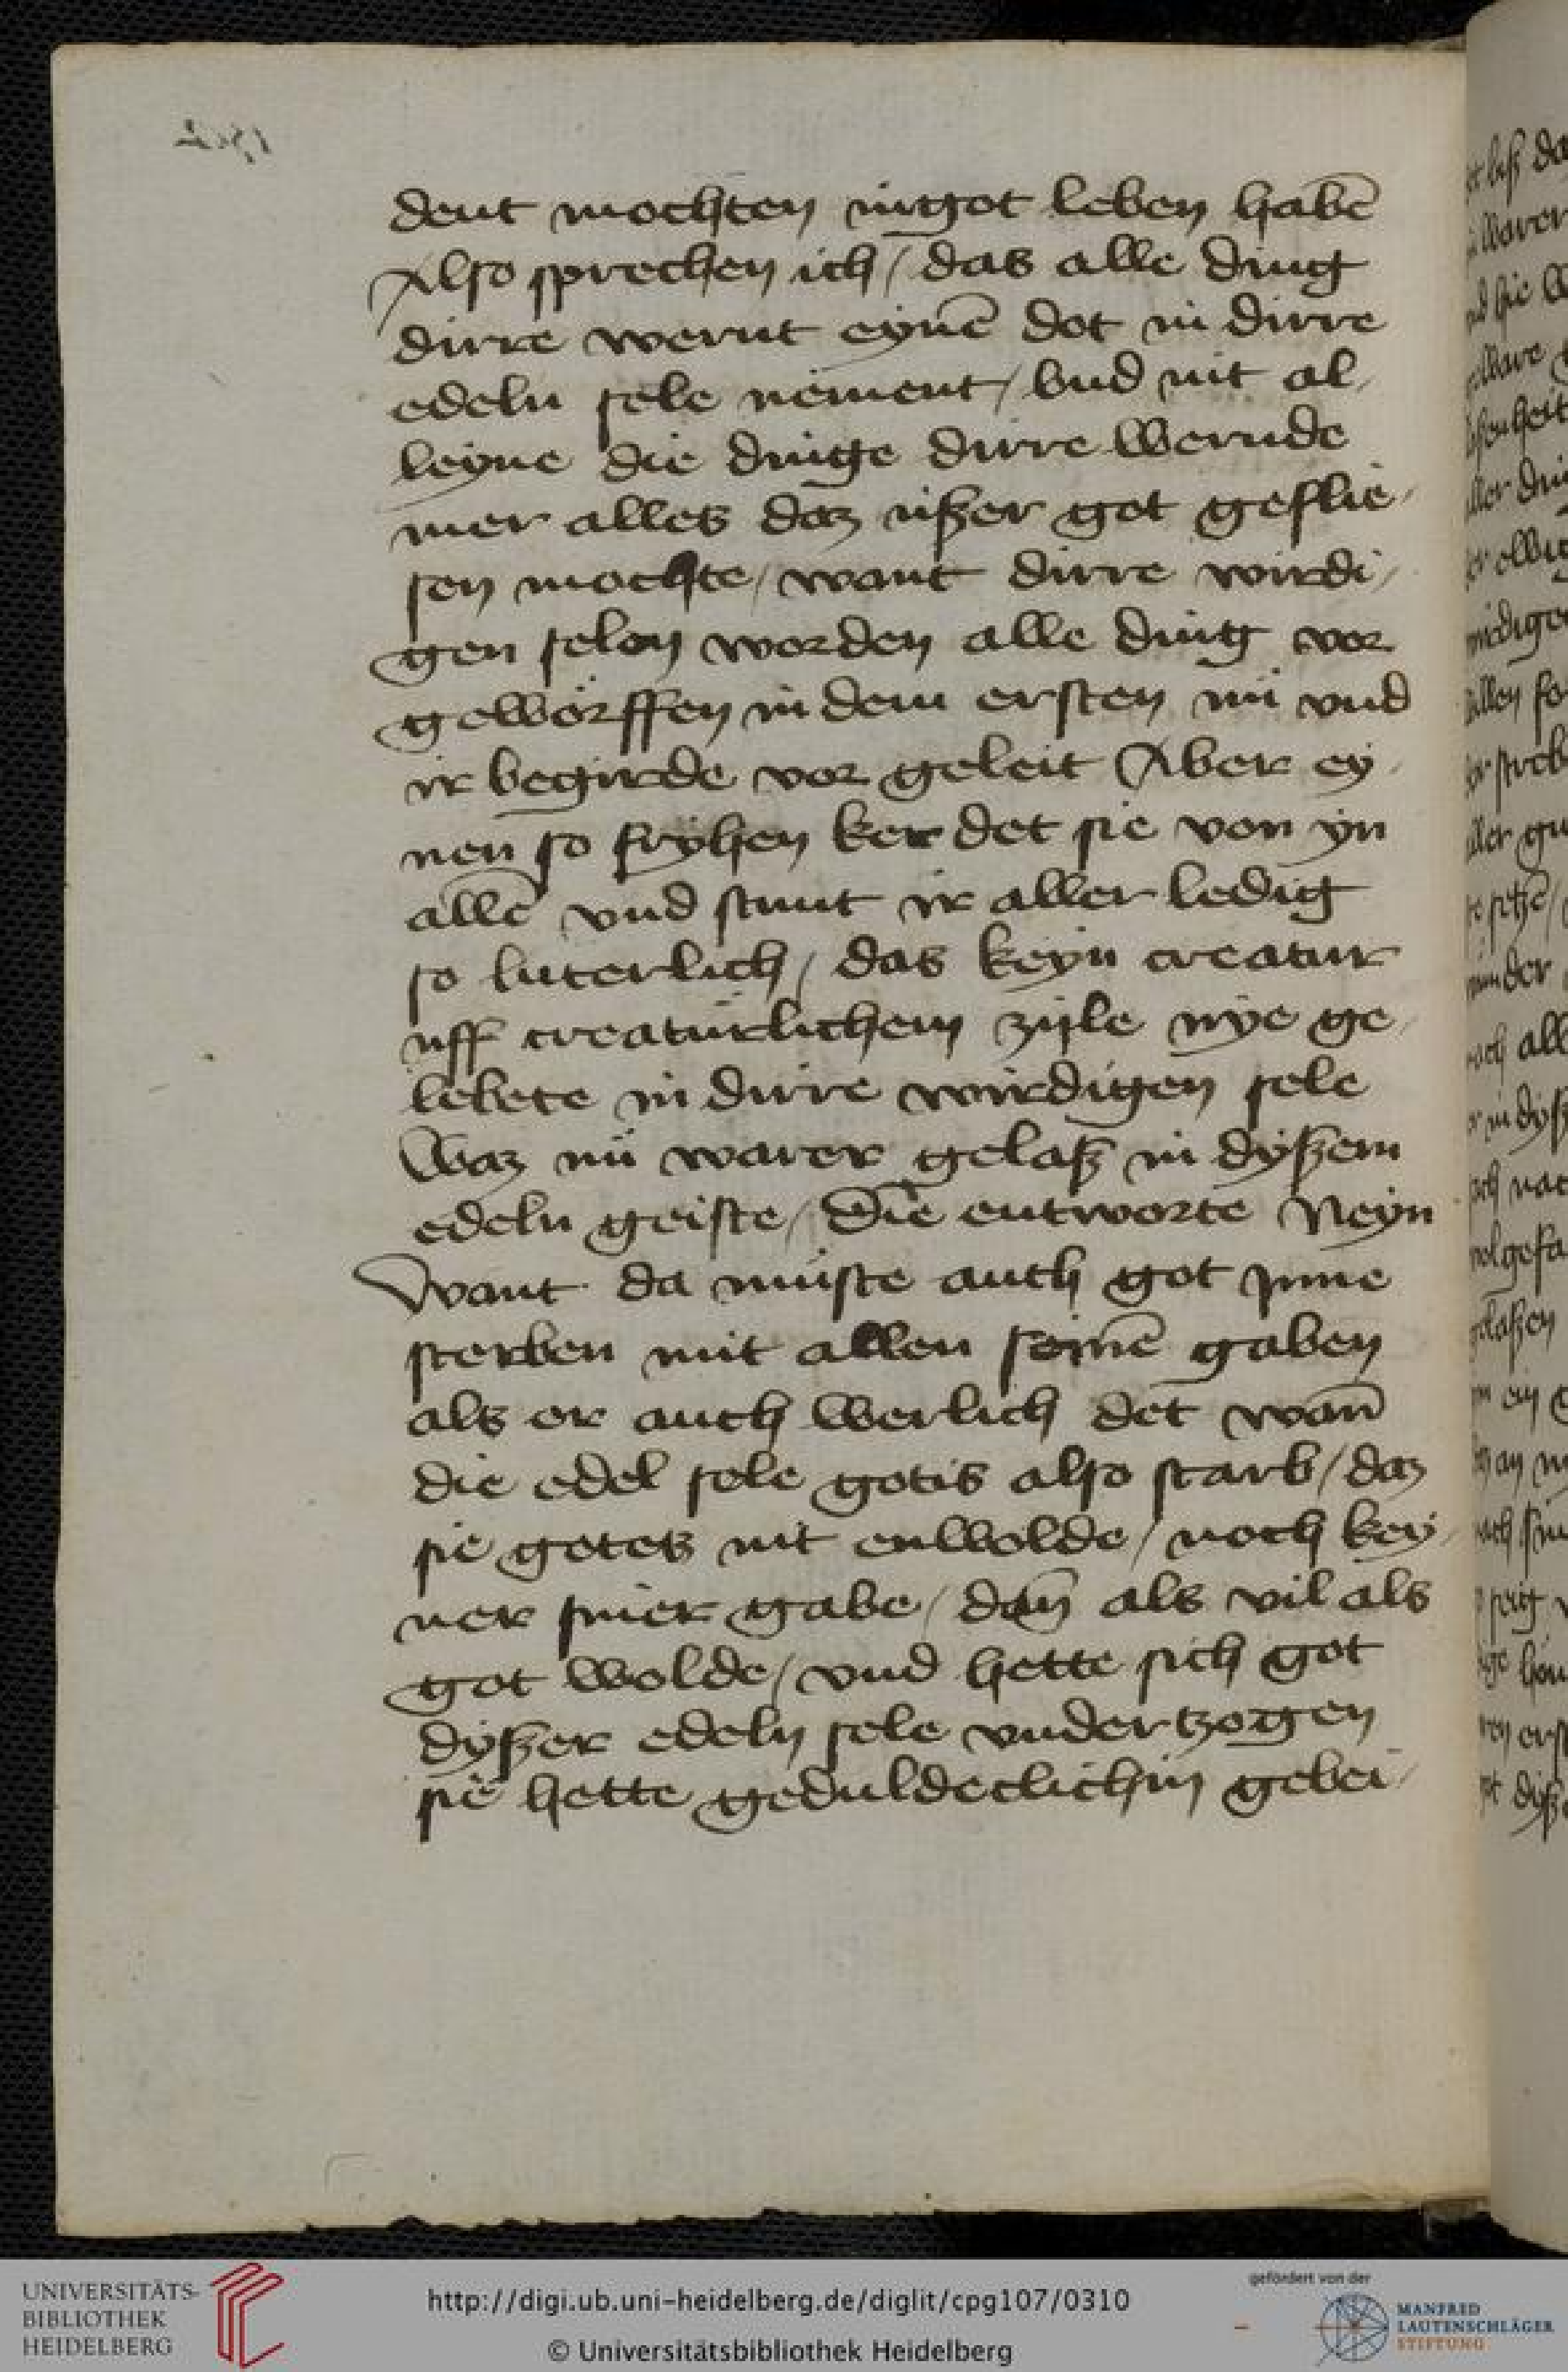 dent mochten in got leben habē
Also sprechen ich / das alle ding
dirre wernt eynē dot in dirre
edeln sele nement / vnd nit al⸗
leyne die dinge dirre wernde
mer alles daz ußer got geflie⸗
sen mochte / want dirre wirdi⸗
gen selen worden alle ding vor
geworffen in dem ersten nu vnd
ir begirde vor geleit Aber ey⸗
nen so fryhen ker det sie von yn
allē vnd stunt ir aller ledig
so luterlich / das keyn creatur
uff creaturlichem zyle nye ge⸗
lebete in dirre wirdigen sele
Waz nu warer gelaß in dyßem
edeln geiste / Die entworte Neyn
Want da muste auch got Inne
sterben mit allen seinē gaben
als er auch werlich det wan̄
die edel sele gotis also starb / daz
sie gotes nit enwolde / noch key⸗
ner siner gabe / dan̄ als vil als
got wolde / vnd hette sich got
dyßer edeln sele vndertzogen
sie hette gedulteclichin gebei⸗
UNIVERSITÄTS-
BIBLIOTHEK
HEIDELBERG
http://digi.ub.uni-heidelberg.de/diglit/cpg107/0310
© Universitätsbibliothek Heidelberg
gefördert von der
MANFRED
LAUTENSCHLÄGER
STIFTUNG